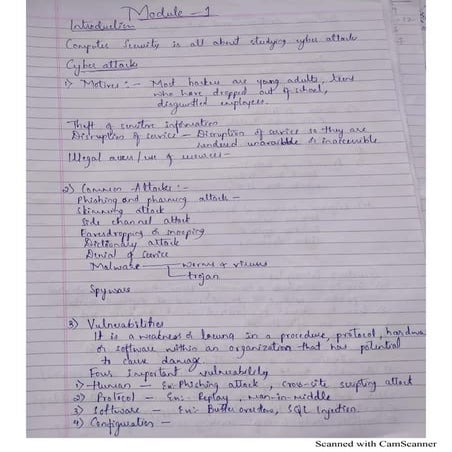 Module - 1
Introduction
Computer Security is all about studying cyber attack
Cyber attack
1) Motives :- Most hackers are young adults, teens
who have dropped out of school,
disgruntled employees.
Theft of sensitive information
Disruption of service - Disruption of service so they are
rendered unavailable or inaccessible
Illegal access/use of resources-
2) Common Attacks :-
Phishing and pharming attack -
Skimming attack
Side channel attack
Eavesdropping or snooping
Dictionary attack
Denial of service
Malware worms & viruses
trojan
Spyware
3) Vulnerabilities
It is a weakness or in a procedure, protocol, hardwa
or software within an organization that has potential
to cause damage.
Four important vulnerability
1) Human - Ex: Phishing attack, cross-site scripting attack
2) Protocol - Ex:- Replay, man-in-middle
3) Software - Ex:- Buffer overflow, SQL Injection.
4) Configuration -
Scanned with CamScanner